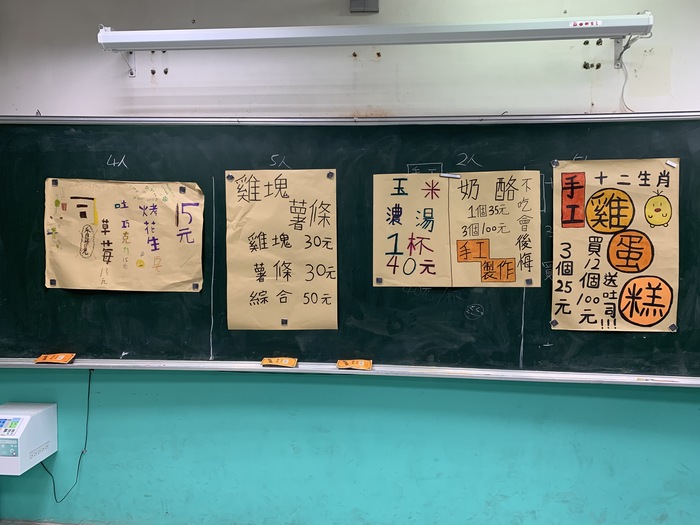 4人
吐司
15元
烤花生厚
巧克力15元
草莓15元
5人
雞塊
薯條
雞塊 30元
薯條 30元
綜合 50元
2人
玉米
濃湯
1杯
40元
奶酪
1個35元
3個100元
手工
製作
不吃會後悔
十二生肖
手工
雞蛋糕
買12個100元
送吐司!!!
3個25元